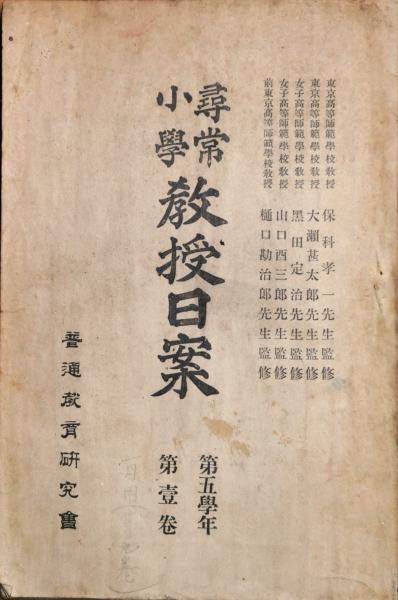 東京高等師範學校教授 保科孝一先生監修
東京高等師範學校教授 大瀨甚太郎先生監修
女子高等師範學校教授 黑田定治先生監修
女子高等師範學校教授 山口酉三郎先生監修
前東京高等師範學校教授 樋口勘治郎先生監修
尋常
小學
教授日案
第五學年
第壹卷
普通教育研究會